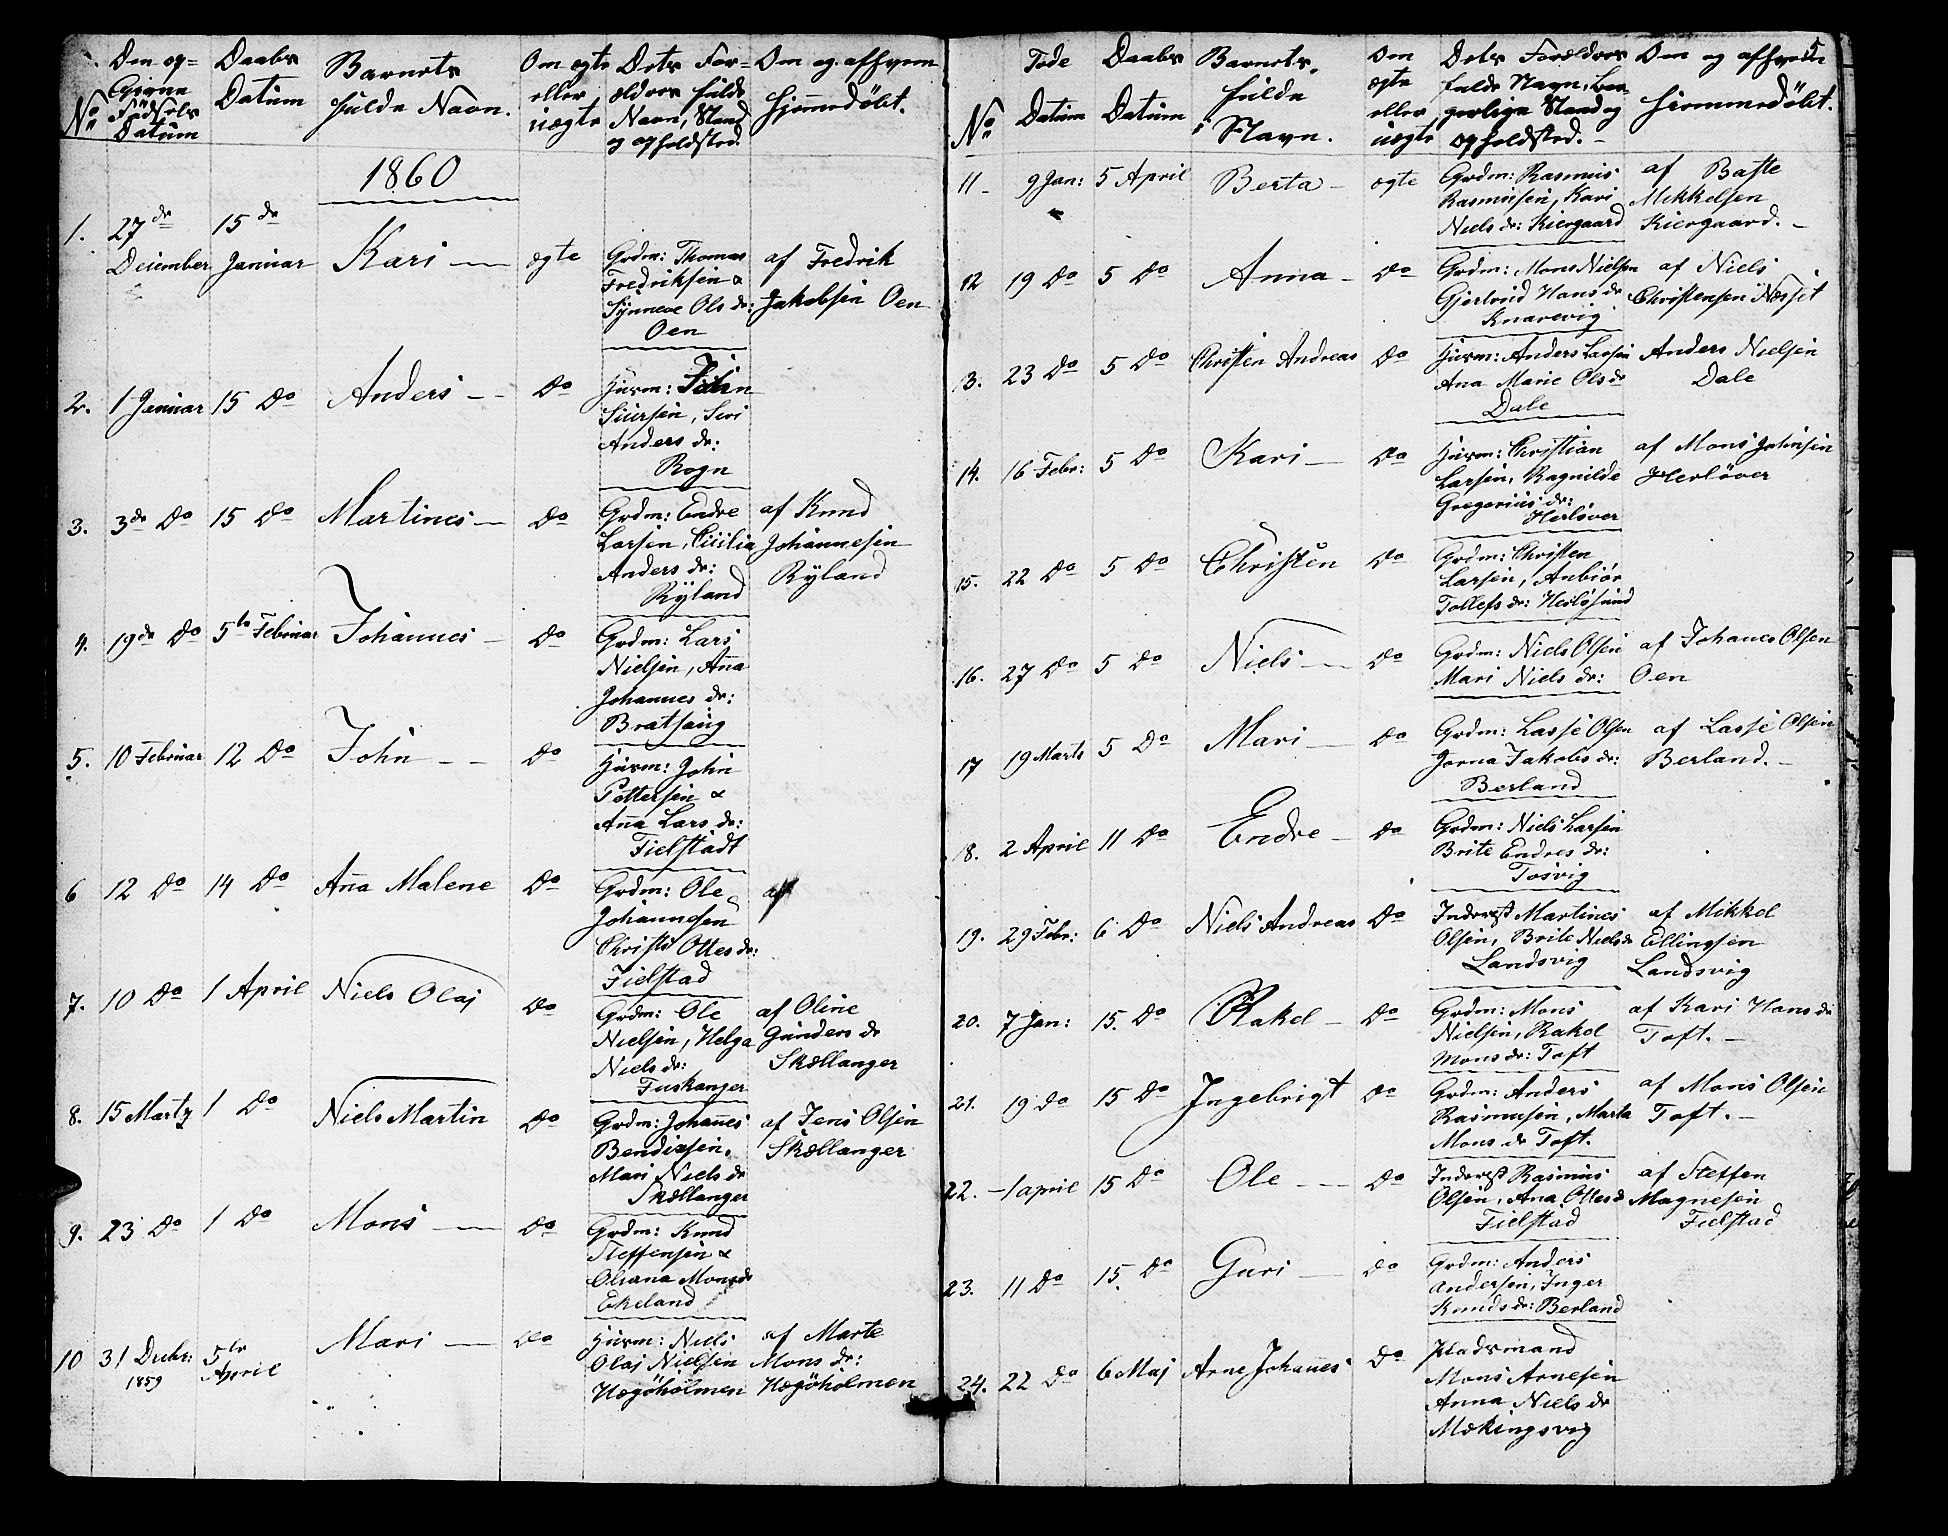 No
Den op=
Givne
Fødsels
Datum
Daabs
Datum
Barnets
fulde Navn.
Om ægte
eller
uægte
Dets For=
ældres fulde
Navn, Stand
og opholdsted.
Om og afhvem
hjemmedøbt.
1860
1.
27de
Deiember
15de
Januar
Kari
ægte
Grdm: Thomas
Fredriksen &
Synneve Ols dr:
Oen
af Fredrik
Jakobsen Oen
2.
1 Januar
15 Do
Anders
Do
Huvm: John
Siursen, Siri
Anders dr:
Rogn
3.
3de Do
15 Do
Martines
Do
Grdm: Endre
Larsen, Cicilia
Anders dr:
Ryland
af Knud
Johannesen
Ryland
4.
19de Do
5te Februar
Johannes
Do
Grdm: Lars
Nielsen, Ana
Johannes dr:
Bratsaug
5.
10 Februar
12 Do
John
Do
Huvm: John
Pettersen &
Ana Lars dr:
Fielstadt
6
12 Do
14 Do
Ana Malene
Do
Grdm: Ole
Johannesen
Christi Ottes dr:
Fielstad
af
7.
10 Do
1 April
Niels Olaj
Do
Grdm: Ole
Nielsen, Helga
Niels dr:
Fuskanger
af Oline
Gunders dr
Skællanger
8.
15 Martz
1 Do
Niels Martin
Do
Grdm: Johanes
Bendixsen,
Mari Niels dr
Skællanger
af Jens Olsen
Skællanger
9.
23 Do
1 Do
Mons
Do
Grdm: Knud
Steffensen &
Oliana Mons dr
Ekeland
10
31 Decbr:
1859
5te
April
Mari
Do
Huvm: Niels
Olaj Nielsen
Hægöholmen
af Marte
Mons dr:
Hægöholmen
5
No
Føde
Datum
Daabs
Datum
Barnets
fulde
Navn.
Om
ægte
eller
uægte
Dets Forældres
fulde Navn, bor
gerlige Stand og
opholdsted.
Om og afhvem
hjemmedøbt.
11
9 Jan:
5 April
Berta
ægte
Grdm: Rasmus
Rasmusen, Kari
Niels dr: Kiergaard
af Baste
Mikkelsen
Kiergaard.
12
19 Do
5 Do
Anna
Do
Grdm: Mons Nielsen
Gjertrud Hans dr
Knarevig
af Niels
Christensen Næsset
13.
23 Do
5 Do
Christen Andreas
Do
Huvm: Anders Larsen
Ana Marie Ols dr
Dale
Anders Nielsen
Dale
14.
16 Febr:
5 Do
Kari
Do
Huvm: Christian
Larsen, Ragnilde
Gregorius dr:
Herløver
af Mons Johnsen
Herløver
15.
22 Do
5 Do
Christen
Do
Grdm: Christen
Larsen, Anbiør
Tollefs dr: Herløsund
16.
27 Do
5 Do
Niels
Do
Grdm: Niels Olsen
Mari Niels dr:
af Johanes Olsen
Oen
17
19 Marts
5 Do
Mari
Do
Grdm: Lasse Olsen
Jorna Jakobs dr:
Berland
af Lasse Olsen
Berland.
18.
2 April
11 Do
Endre
Do
Grdm: Niels Larsen
Brite Endres dr:
Tosvig
19.
29 Febr:
6 Do
Niels Andreas
Do
Inderst Martines
Olsen, Brite Niels dr
Landsvig
af Mikkel
Ellingsen
Landsvig
20.
7 Jan:
15. Do
Rakel
Do
Grdm: Mons
Nielsen, Rakel
Mons dr: Toft
af Kari Hans dr
Toft.
21.
19 do
15 Do
Ingebrigt
Do
Grdm: Anders
Rasmusen, Marta
Mons dr Toft.
af Mons Olsen
Toft.
22.
1 april
15 Do
Ole
Do
Inderst Rasmus
Olsen, Ana Ottes dr
Fielstad
af Steffen
Magnesen
Fielstad
23.
11 Do
15. Do
Guri
Do
Grdm: Anders
Andersen, Inger
Knuds dr: Berland
24.
22 Do
6 Maj
Arne Johanes
Do
Pladsmand
Mons Arnesen
Anna Niels dr
Mækingsvig